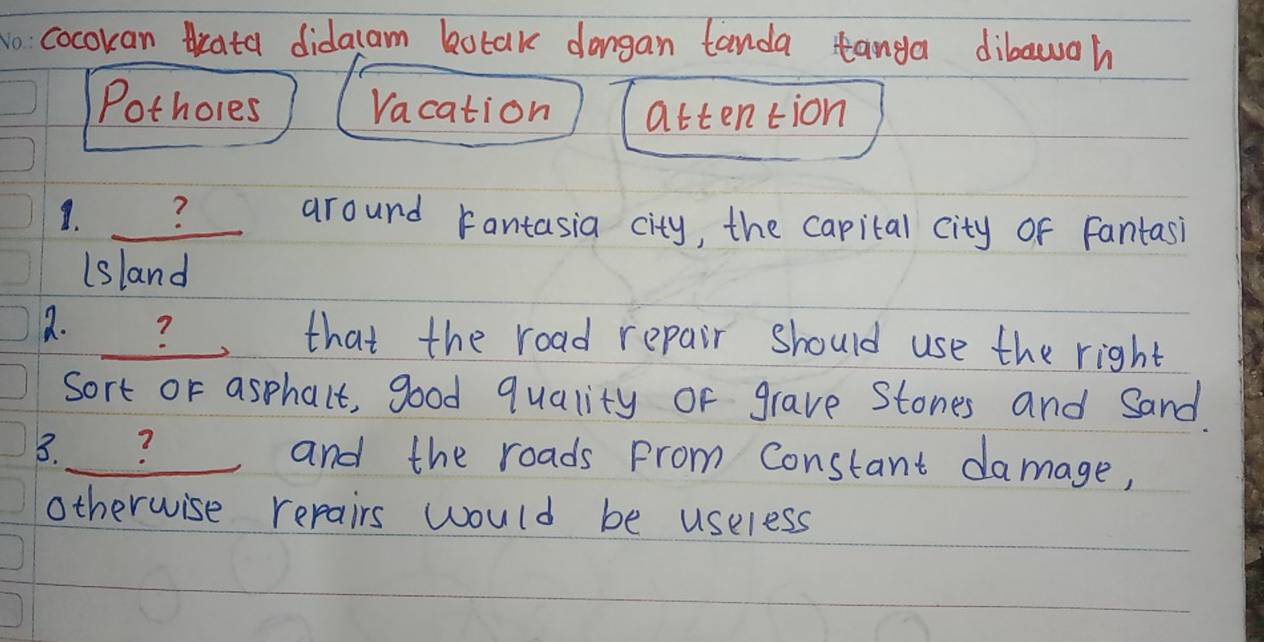 No: Cocokan kata didalam kotak dengan tanda tanya dibawah
Potholes Vacation attention
1. ? around Fantasia city, the capital city of Fantasi
Island
2. ? that the road repair should use the right
Sort of asphalt, good quality of grave Stones and Sand.
3. ? and the roads from constant damage,
otherwise repairs would be useless